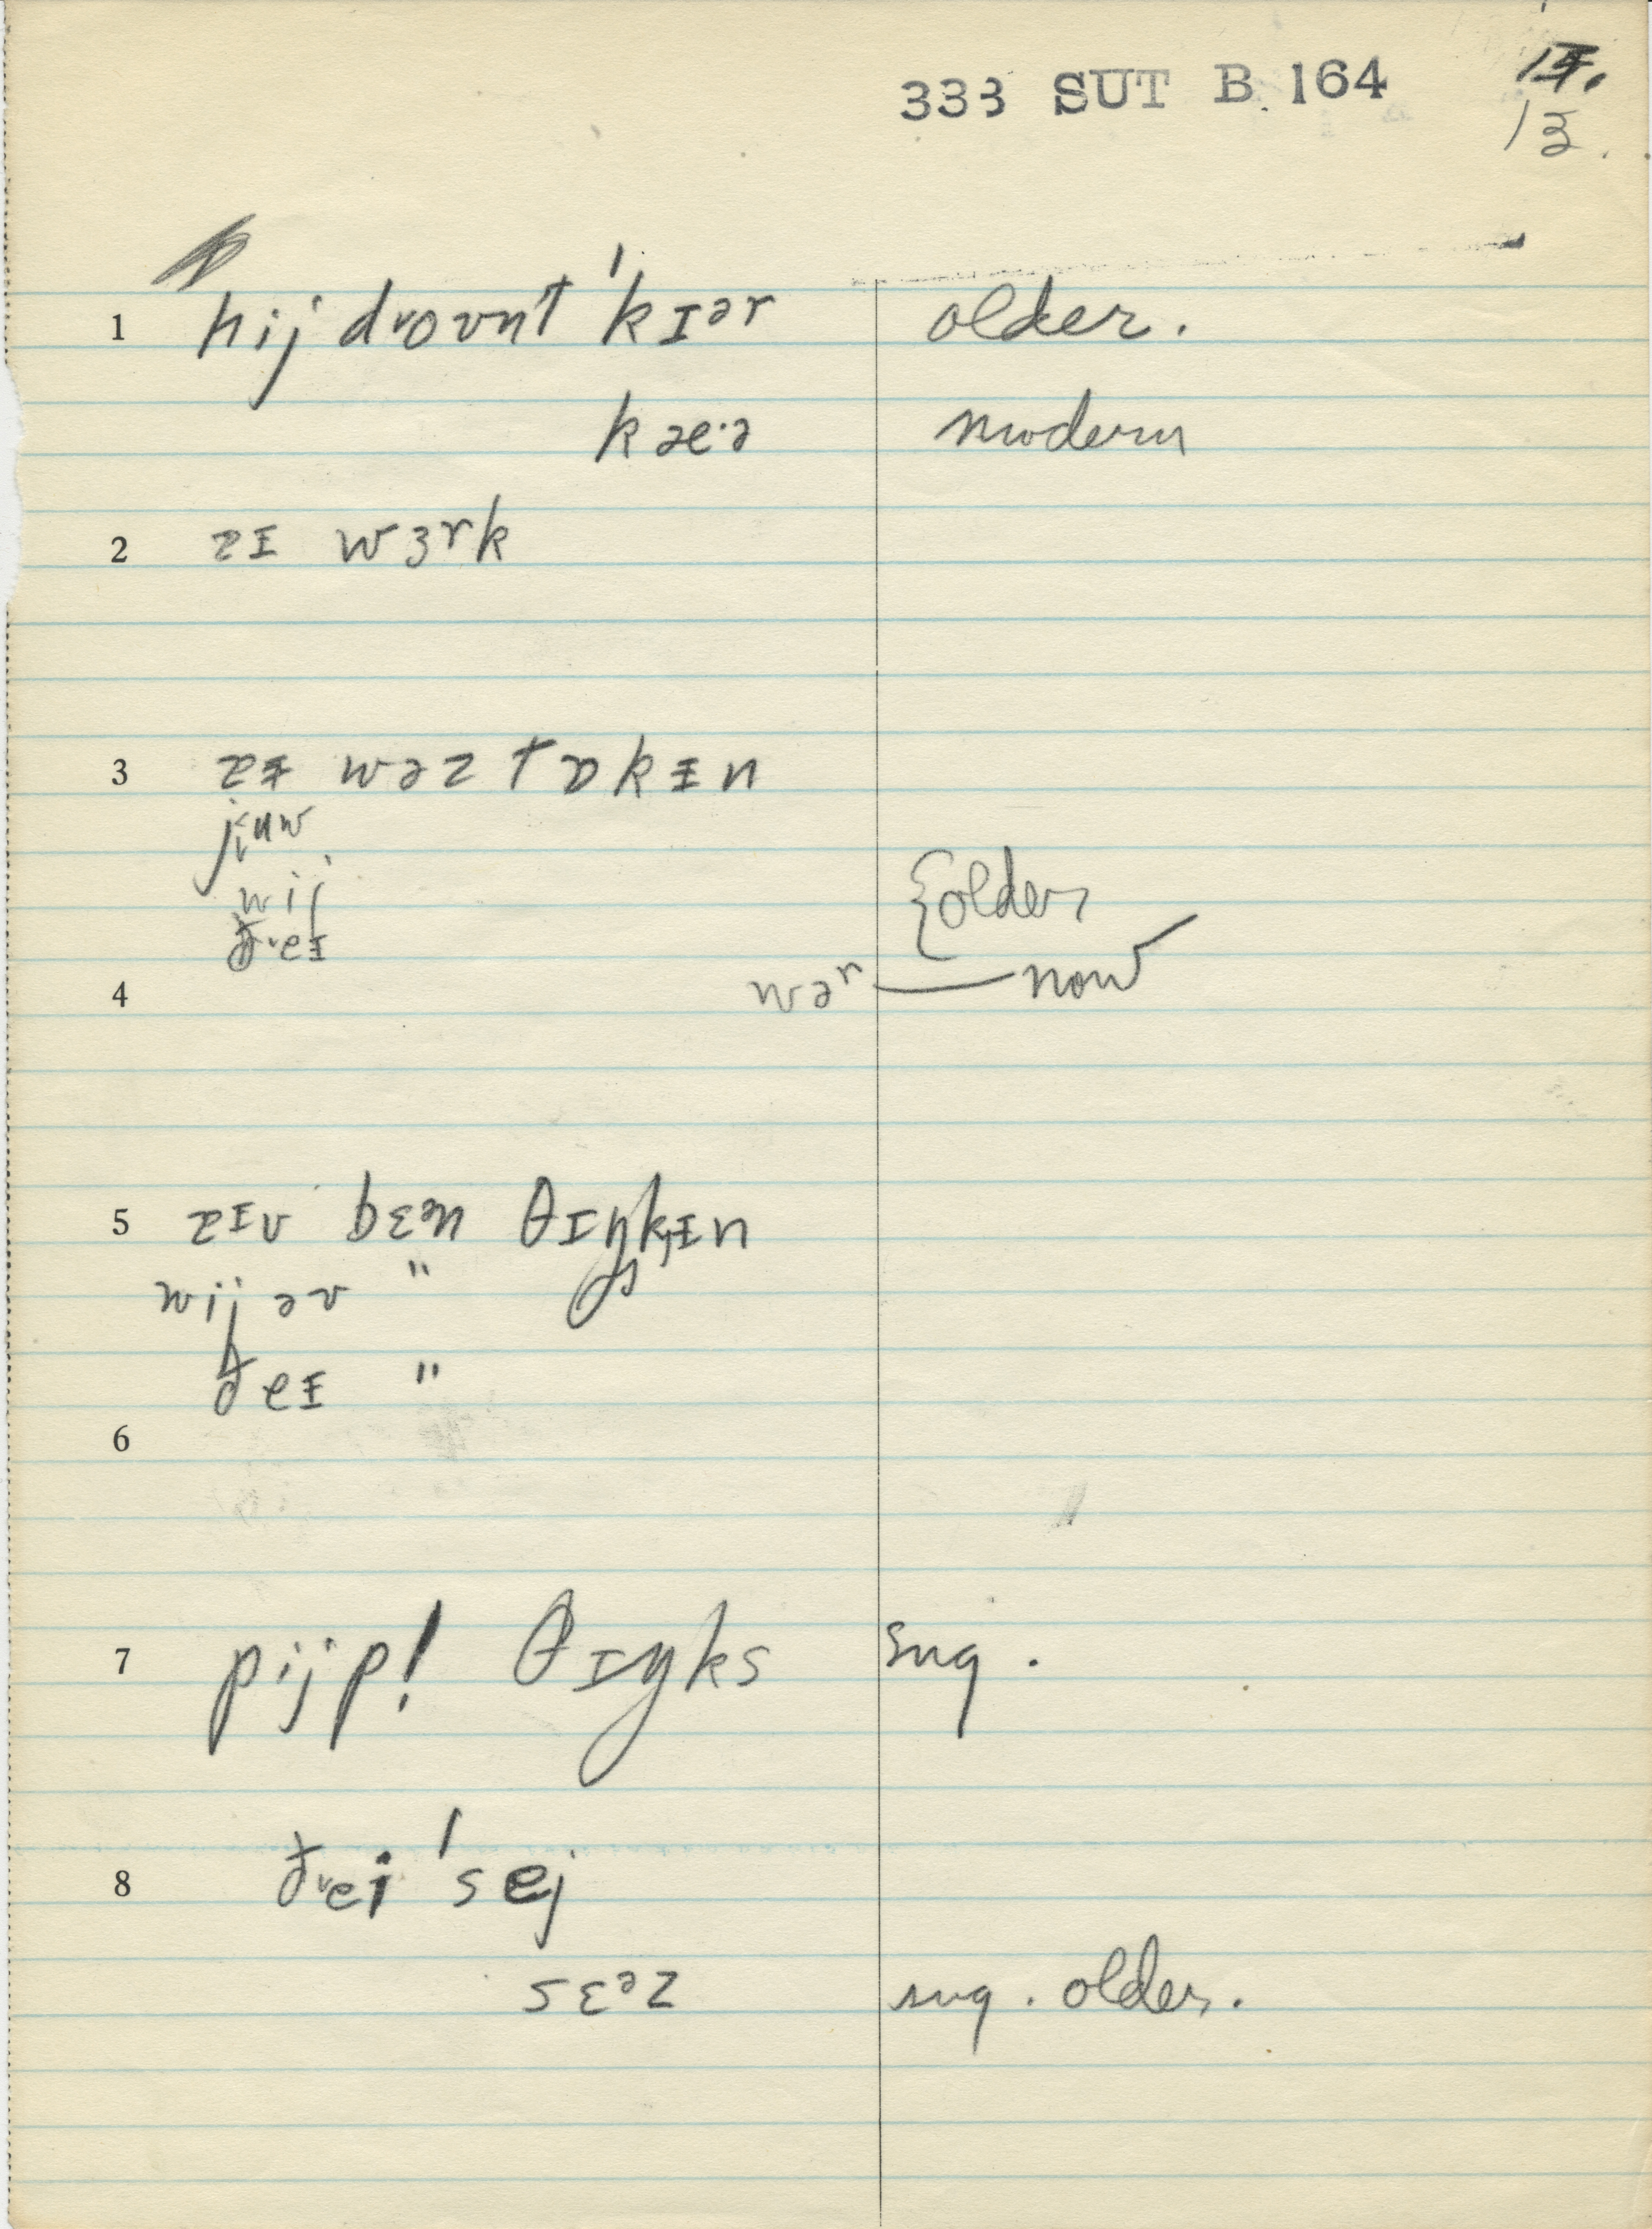 333 SUT B. 164
13.
1 hij doʊnt ˈkɪər older.
kæ·ə modern
2 zɪ wɜrk
3 zɪ wəz tɒkɪn
juw
wij
ðeɪ {older
4 wər — now
5 zɪv bɛən θɪŋkɪn
wij əv "
ðeɪ "
6
7 pijp! θɪŋks sng.
8 ðei ˈsej
sɛəz sng. older.